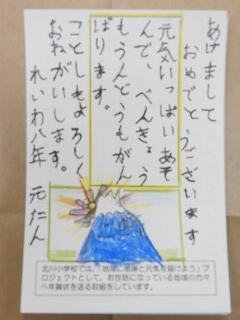 あけまして
おめでとうございます
元気いっぱいあそ
んで、べんきょう
もうんどうもがん
ばります。
ことしもよろしく
おねがいします。
れいわ八年 元たん
北川小学校では、「地域に感謝と元気を届けよう」プ
ロジェクトとして、お世話になっている地域の方々
へ年賀状を送る取組をしています。